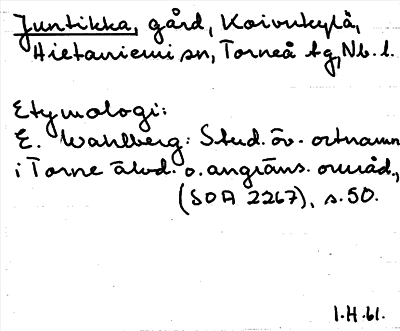 Juntikka, gård, Koivukylä,
Hietaniemi sn, Torneå tg, Nb. l.
Etymologi:
E. Wahlberg: Stud. öv. ortnamn
i Torne älvd. o. angräns. områd.,
(SOA 2267), s. 50.
1.H.61.